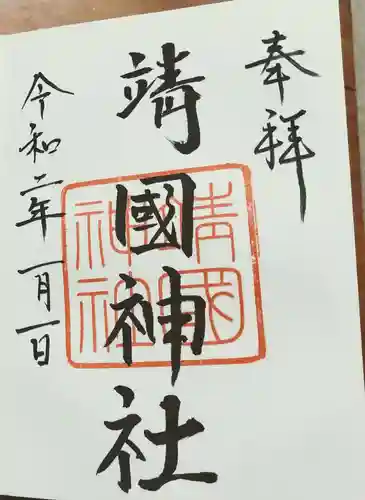 奉拝
靖國神社
靖國
神社
令和二年一月一日